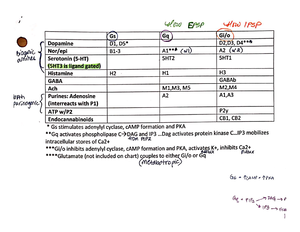 w/in EPSP
w/in IPSP
Gs Gq Gi/o
Dopamine D1, D5* D2,D3, D4***
biogenic amines
Nor/epi B1-3 A1** (α1) A2 (α2)
Serotonin (5-HT) 5HT2 5HT1
(5HT3 is ligand gated)
Histamine H2 H1 H3
GABA GABAb
Ach M1,M3, M5 M2,M4
Both purinergic
Purines: Adenosine A2 A1,A3
(interracts with P1)
ATP w/P2 P2y
Endocannabinoids CB1, CB2
* Gs stimulates adenylyl cyclase, cAMP formation and PKA
**Gq activates phospholipase C→DAG and IP3 …Dag activates protein kinase C…IP3 mobilizes
intracellular stores of Ca2+
***Gi/o inhibits adenylyl cyclase, cAMP formation and PKA, activates K+, inhibits Ca2+
efflux influx
****Glutamate (not included on chart) couples to either Gi/o or Gq
(metabotropic)